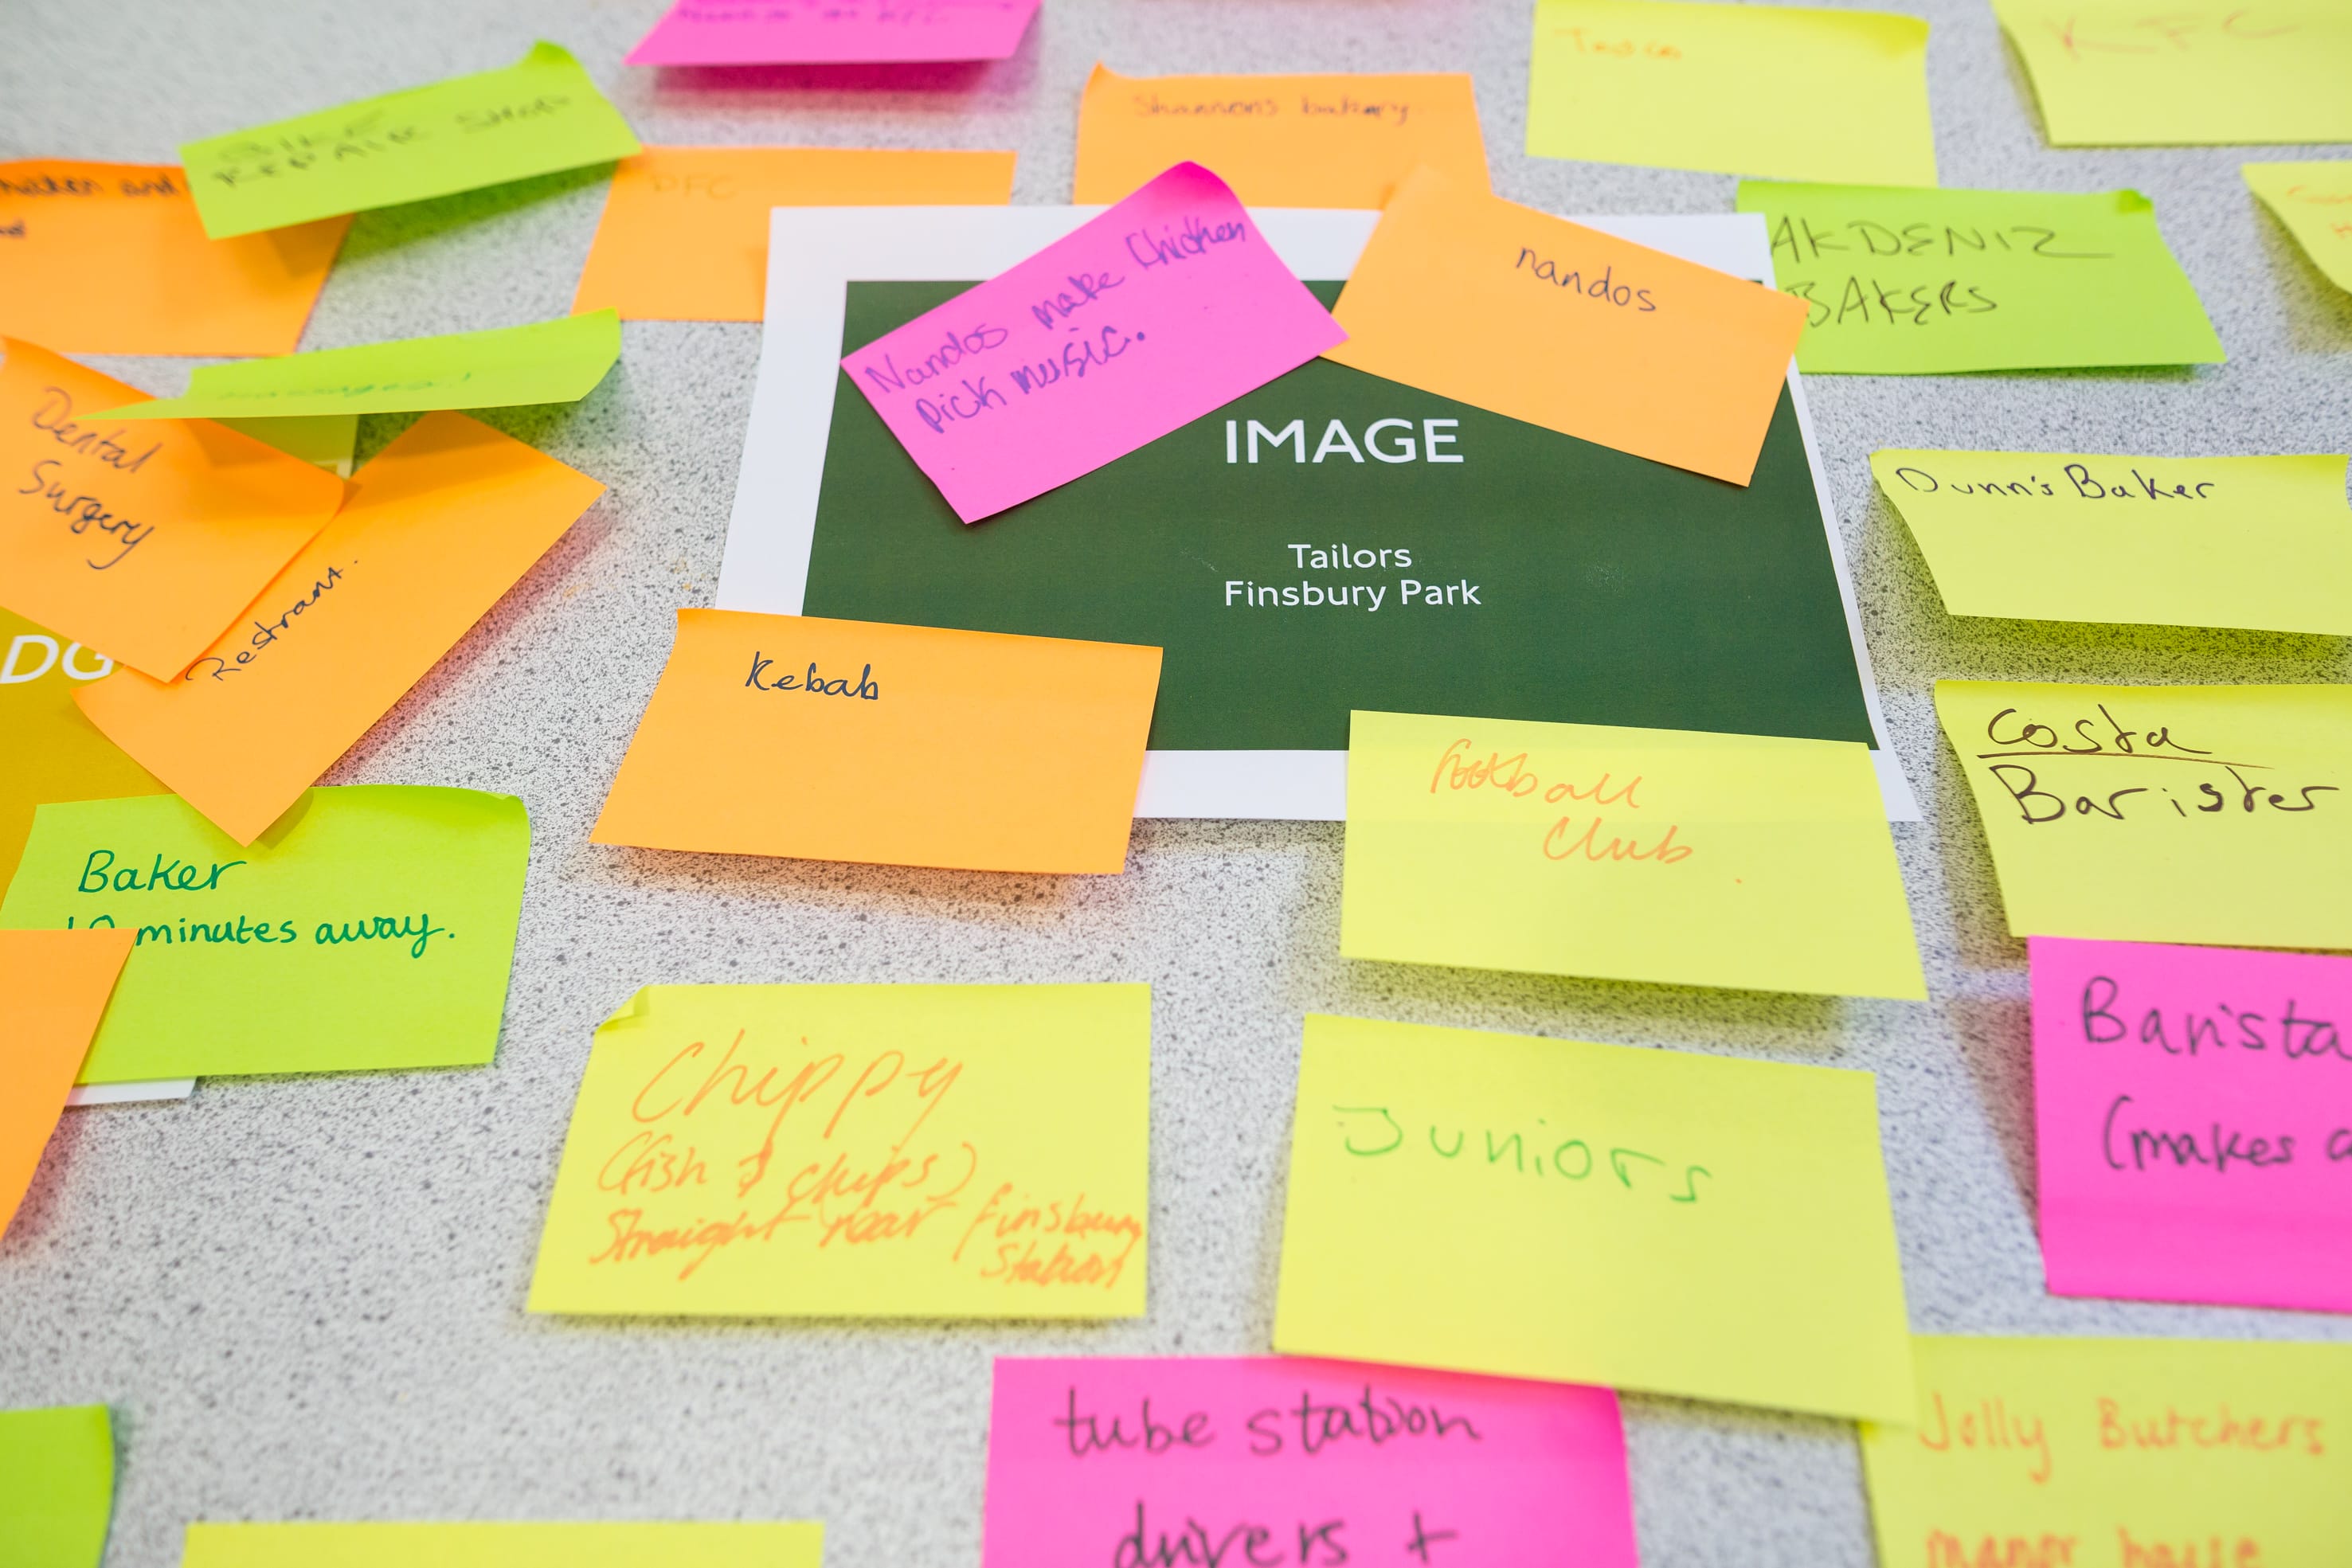 KFC
Shannons bakery.
BIKE
REPAIR SHOP
DFC
AKDENIZ
BAKERS
Nandos make Chicken
pick music.
nandos
Dental
Surgery
Restrant.
IMAGE
Tailors
Finsbury Park
Dunn's Baker
DG
Kebab
football
Club
Costa
Barister
Baker
10 minutes away.
Barista
(makes
Chippy
(fish & chips)
Straight near finsbury
Station
Juniors
tube station
drivers +
Jolly Butchers
manor house